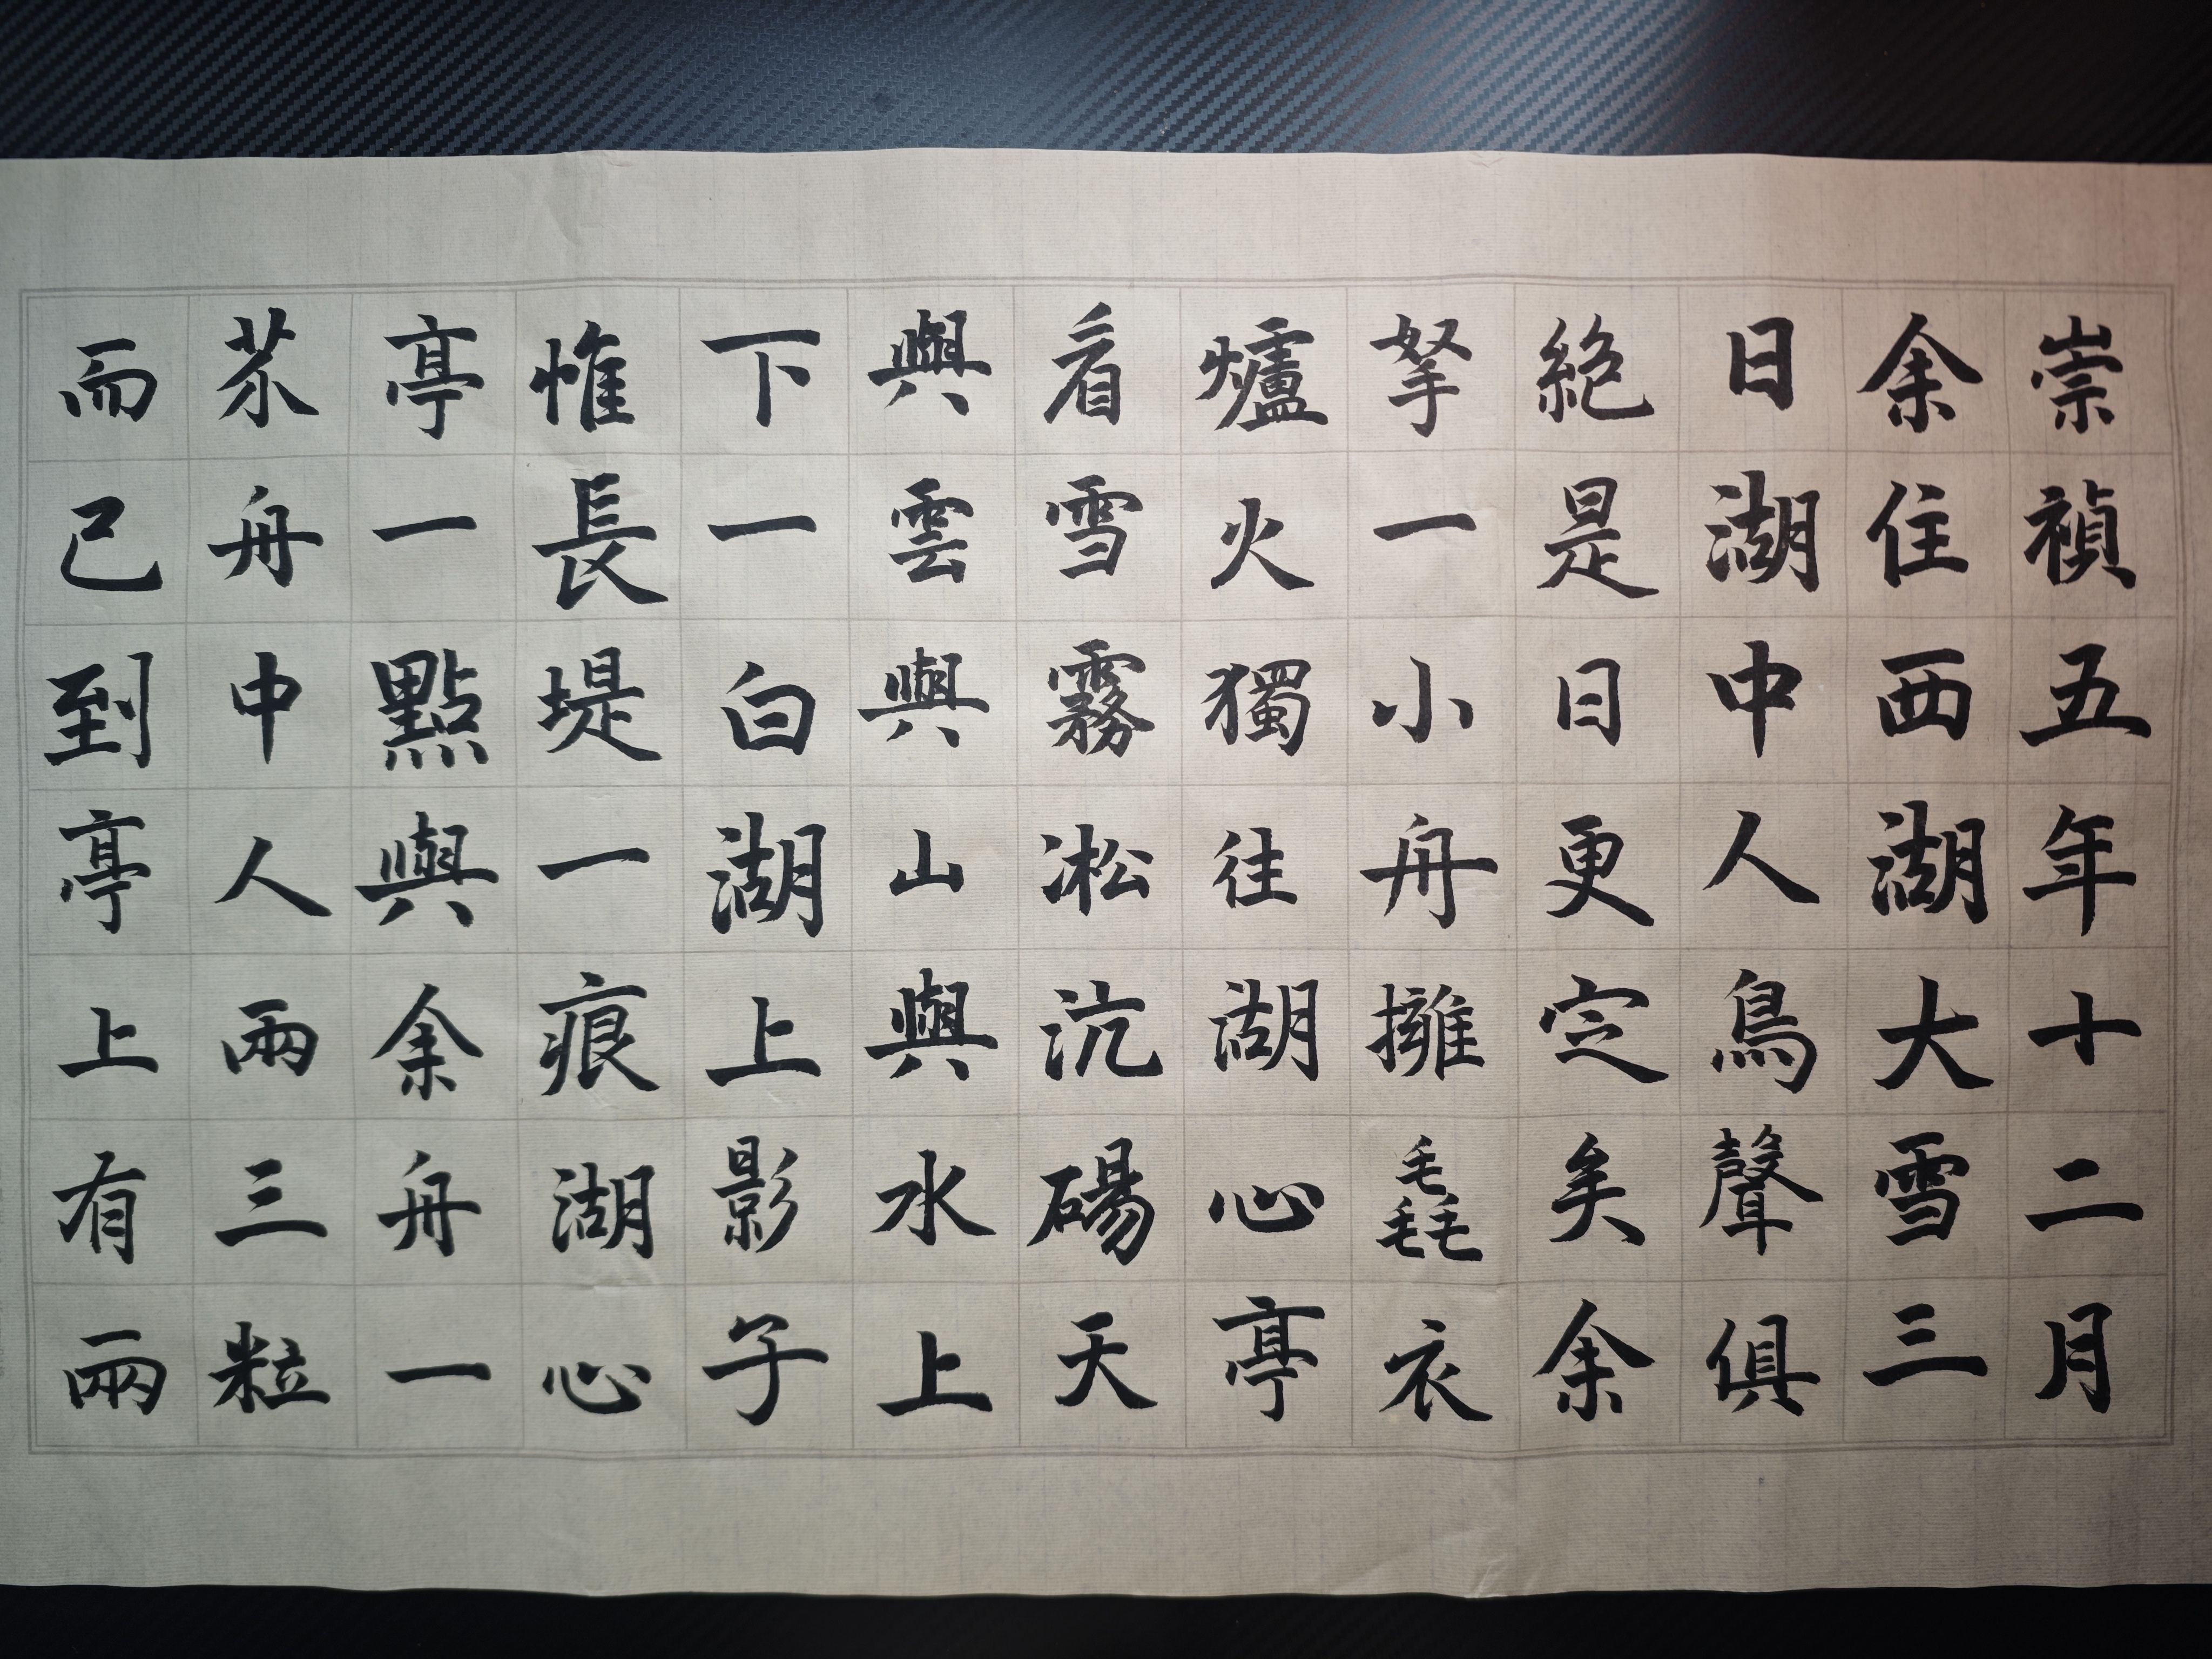 崇禎五年十二月
余住西湖大雪三
日湖中人鳥聲俱
絕是日更定矣余
拏一小舟擁毳衣
爐火獨往湖心亭
看雪霧凇沆碭天
與雲與山與水上
下一白湖上影子
惟長堤一痕湖心
亭一點與余舟一
芥舟中人兩三粒
而已到亭上有兩